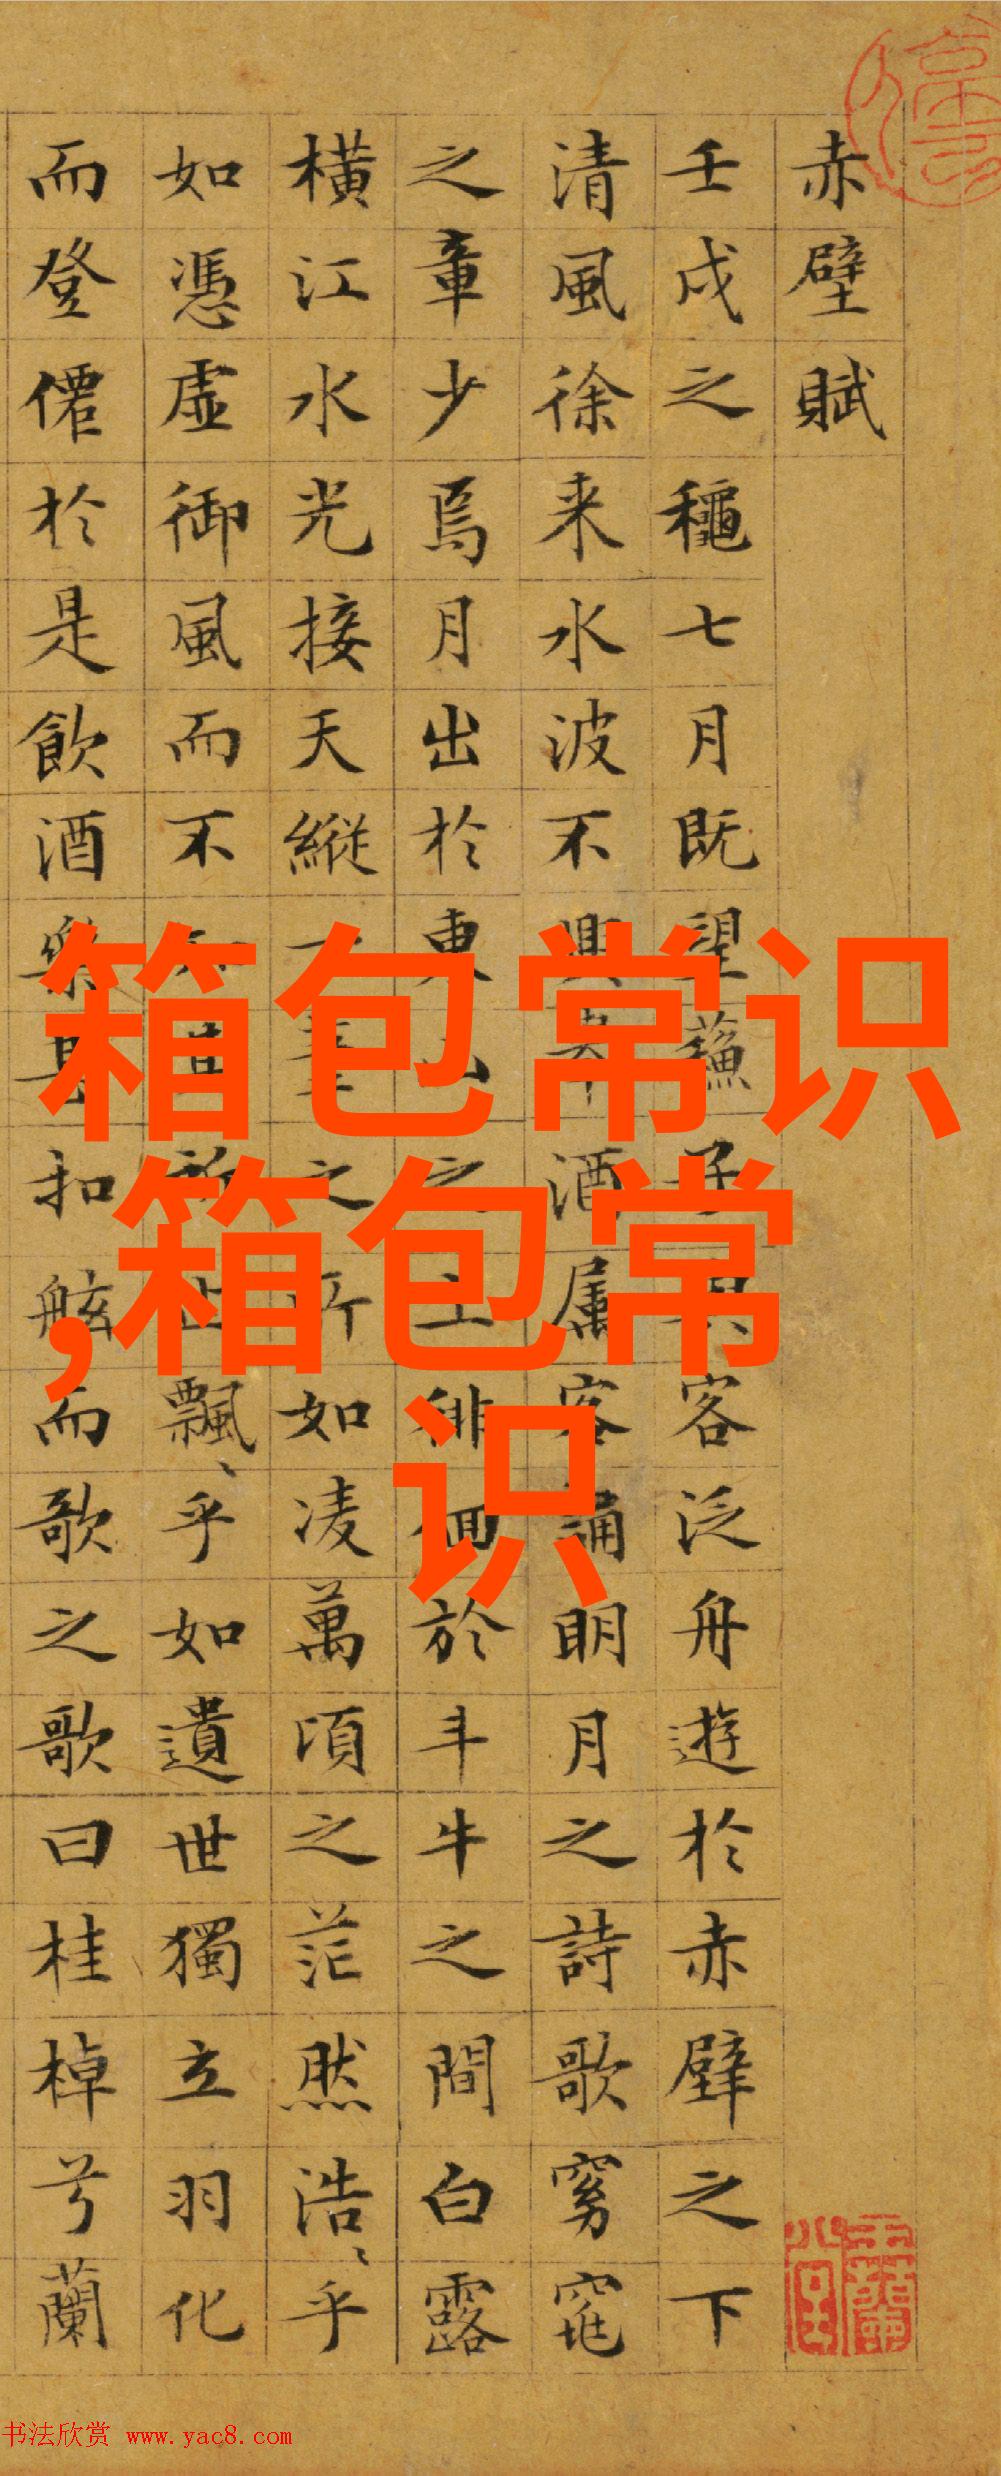 赤壁賦
壬戌之龝七月既望蘓子與客泛舟遊於赤壁之下
清風徐来水波不興舉酒属客誦明月之詩歌窈窕
之章少焉月出於東山之上徘徊於斗牛之間白露
橫江水光接天縱一葦之所如凌萬頃之茫然浩〻乎
如憑虛御風而不知其所止飄〻乎如遺世獨立羽化
而登僊於是飲酒樂甚扣舷而歌之歌曰桂棹兮蘭
箱包常识
,箱包常
识
书法欣赏 www.yac8.com